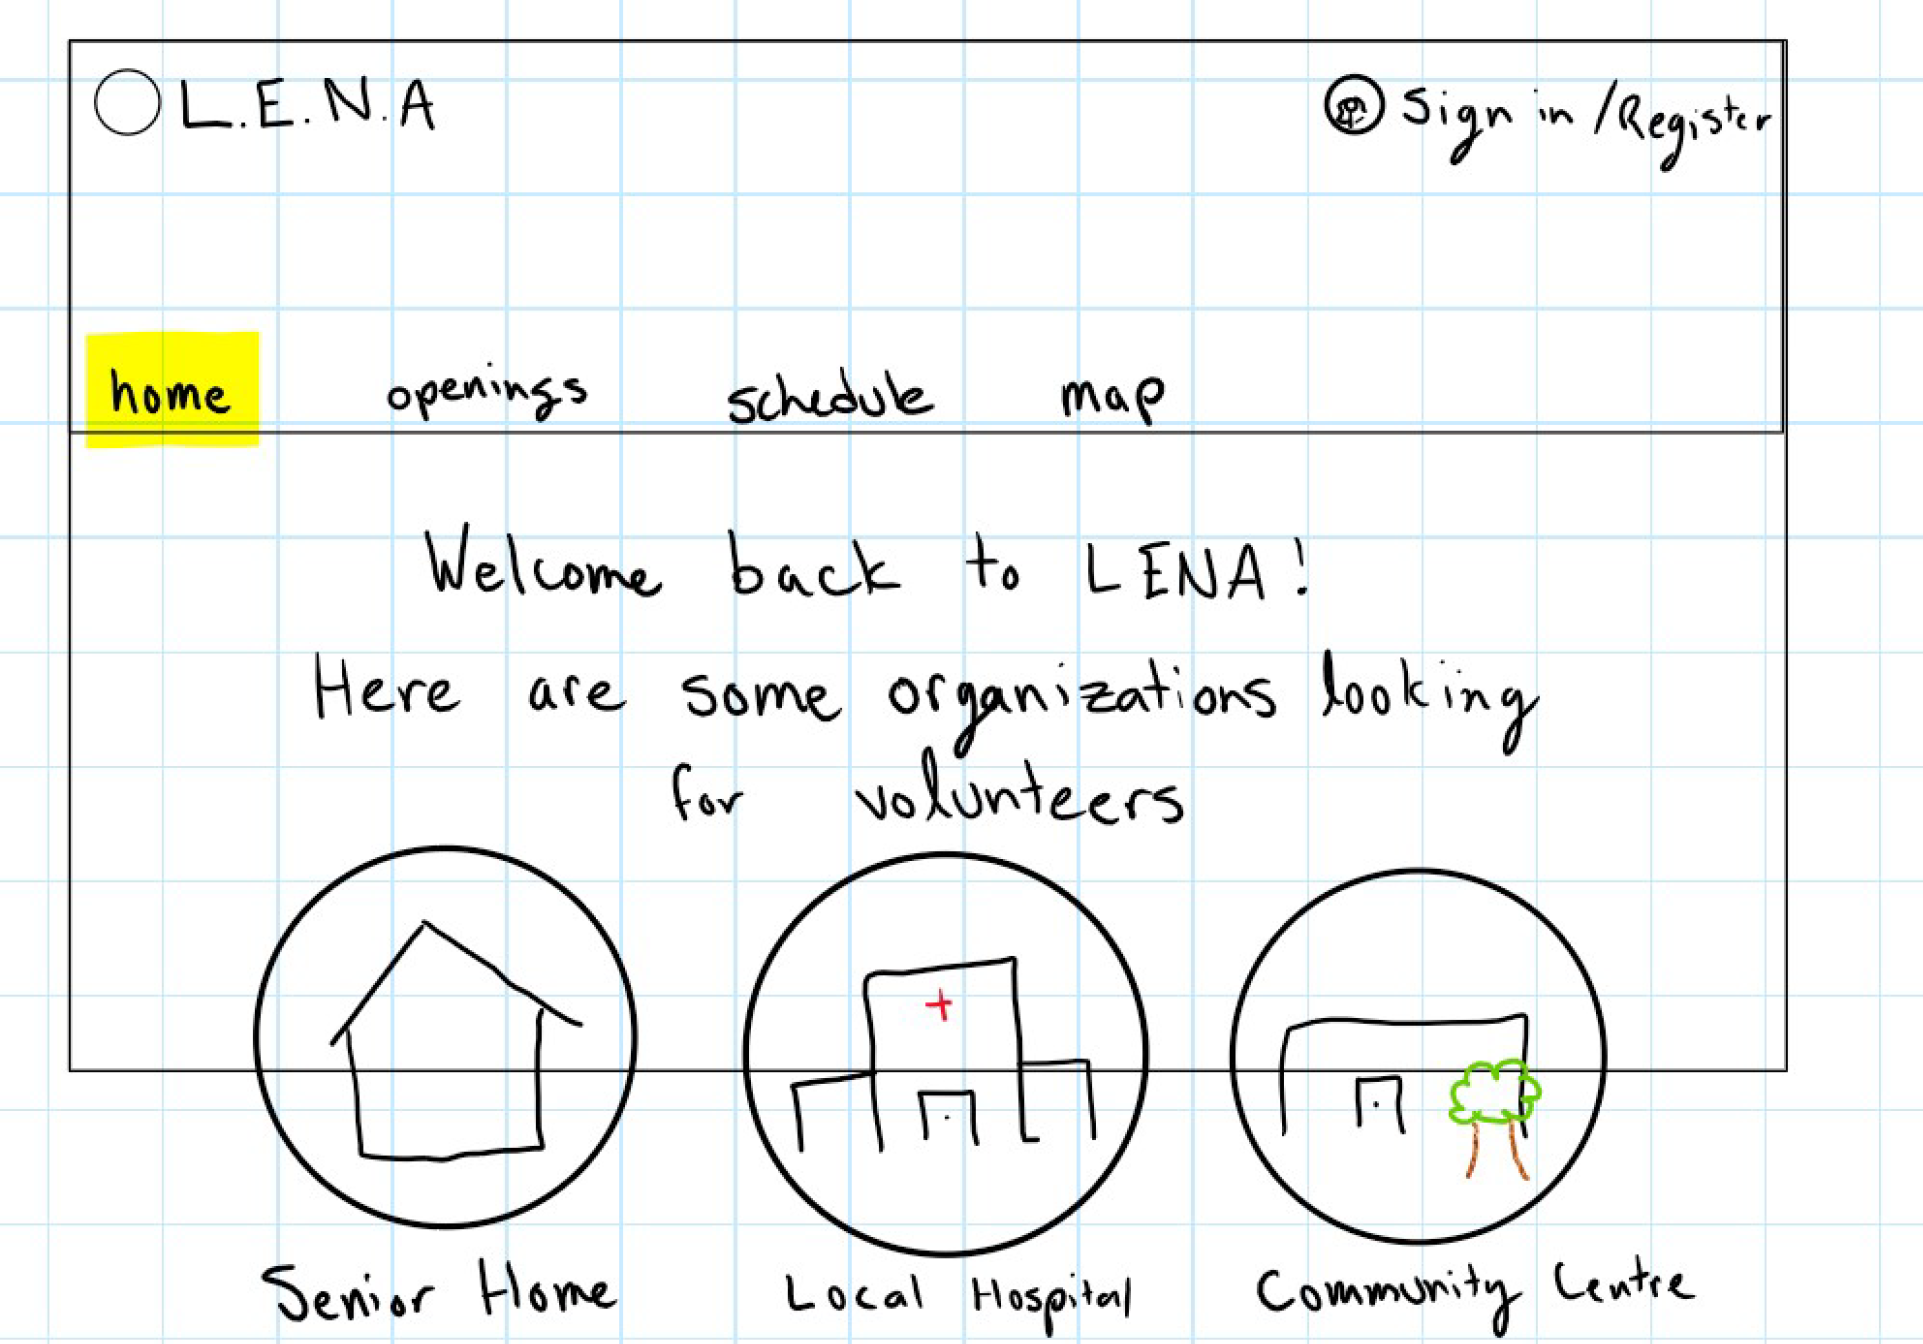 L.E.N.A
Sign in /Register
home openings schedule map
Welcome back to LENA!
Here are some organizations looking
for volunteers
Senior Home
Local Hospital
Community Centre